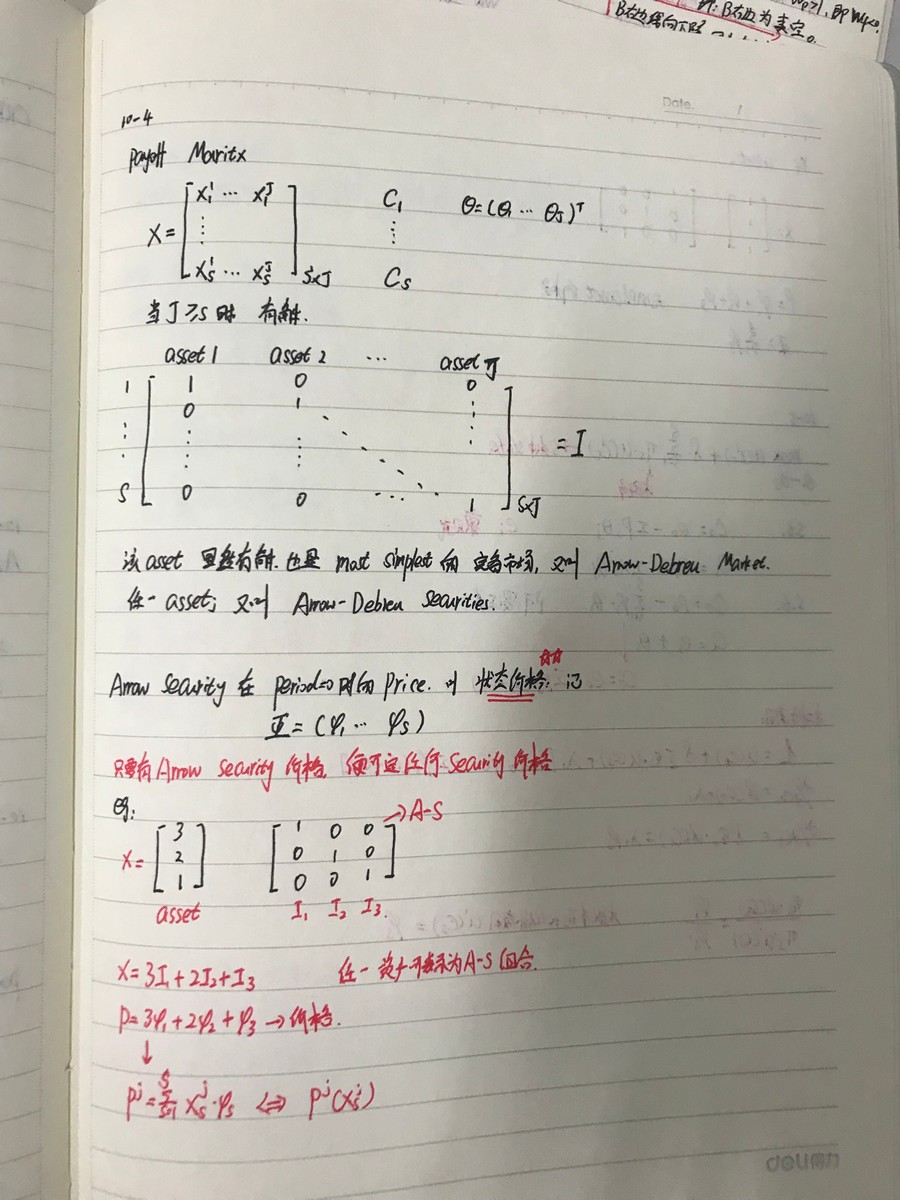 Wp>1, 即 Wq<0.
B右边为真空。
Date. /
10-4
payoff Maritx
X = [ x₁¹ ··· x₁ᴶ ⋮ xₛ¹ ··· xₛᴶ ] S×J C₁ ⋮ Cₛ θ=(θ₁ ··· θJ)ᵀ
当 J≥S 时 有解.
asset 1 asset 2 ··· asset J
1 1 0 0
0 1
⋮ ⋮ ⋮ ⋱ ⋮ = I
S 0 0 ··· 1 S×J
该 asset 显然有解. 也是 most simplest 的 完备市场, 又叫 Arrow-Debreu Market.
任一 asset; 又叫 Arrow-Debreu Securities.
Arrow Security 在 period=0 时的 price. 叫 状态价格; 记
Φ = (φ₁ ··· φₛ)
只要有 Arrow Security 价格, 便可定任何 Security 价格
例:
→A-S
X = [ 3 2 1 ] [ 1 0 0 0 1 0 0 0 1 ]
asset I₁ I₂ I₃.
X = 3I₁ + 2I₂ + I₃ 任一资产可表示为 A-S 组合.
P = 3φ₁ + 2φ₂ + φ₃ → 价格.
↓
Pʲ = Σ(s=1→S) xₛʲ · φₛ ⇔ Pʲ(xₛʲ)
deli得力